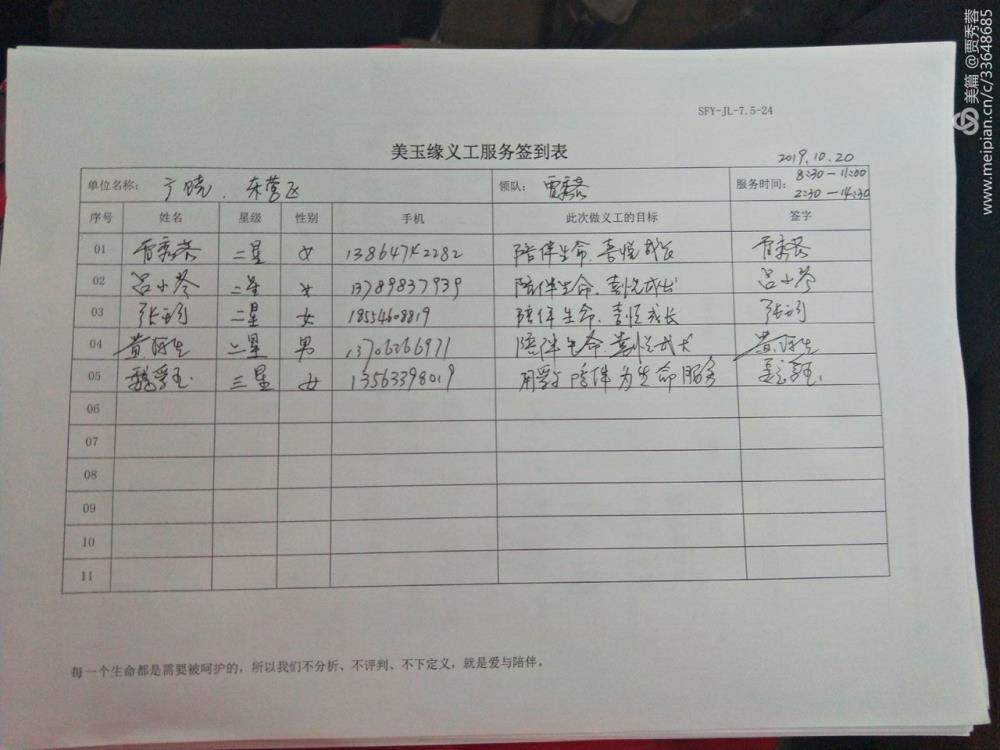 美篇 @贾秀蓉
www.meipian.cn/c/33648685
SFY-JL-7.5-24
美玉缘义工服务签到表
2019.10.20
单位名称: 广饶、东营区 领队: 贾秀蓉 服务时间: 8:30—11:00
2:30—14:30
序号 姓名 星级 性别 手机 此次做义工的目标 签字
01 二星 女 陪伴生命、喜悦成长
02 吕小琴 二星 女 13789837939 陪伴生命、喜悦成长 吕小琴
03 二星 女 18554608819 陪伴生命、喜悦成长
04 二星 男 13706366971 陪伴生命、喜悦成长
05 三星 女 13563398019 用爱陪伴为生命服务
06
07
08
09
10
11
每一个生命都是需要被呵护的，所以我们不分析、不评判、不下定义，就是爱与陪伴。